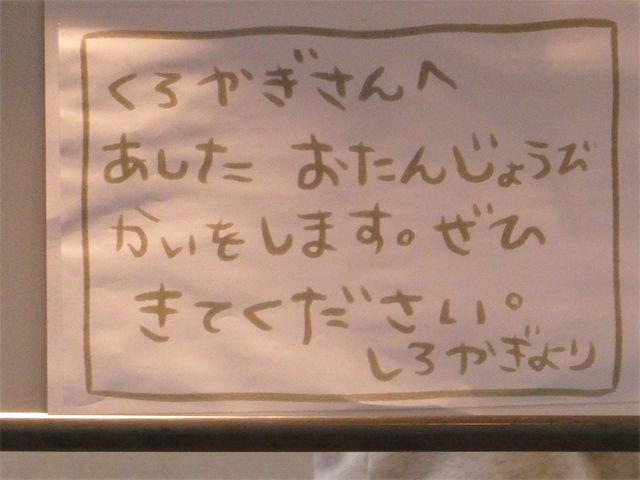 くろかぎさんへ
あした おたんじょうび
かいをします。ぜひ
きてください。
しろかぎより